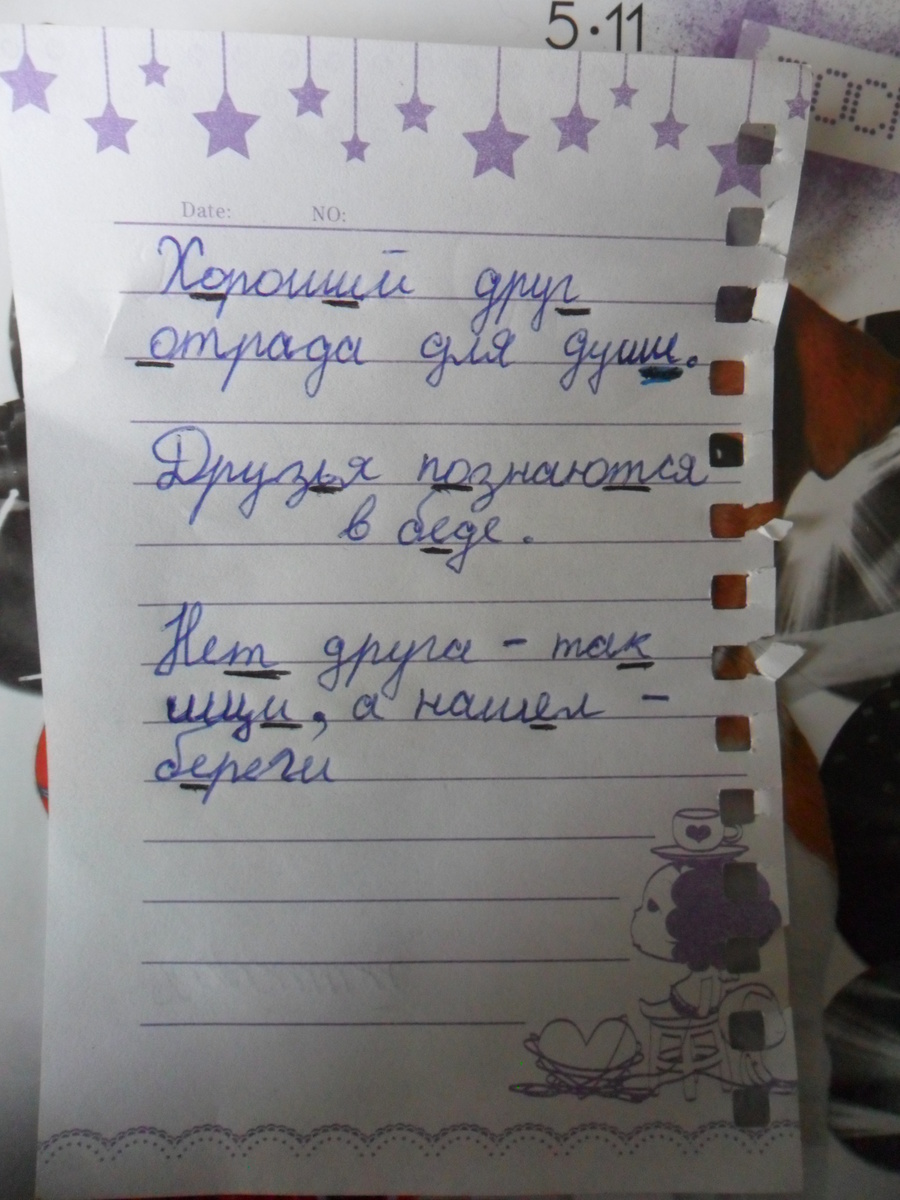 5·11
Date: NO:
Хороший друг
отрада для души.
Друзья познаются
в беде.
Нет друга - так
ищи, а нашел -
береги